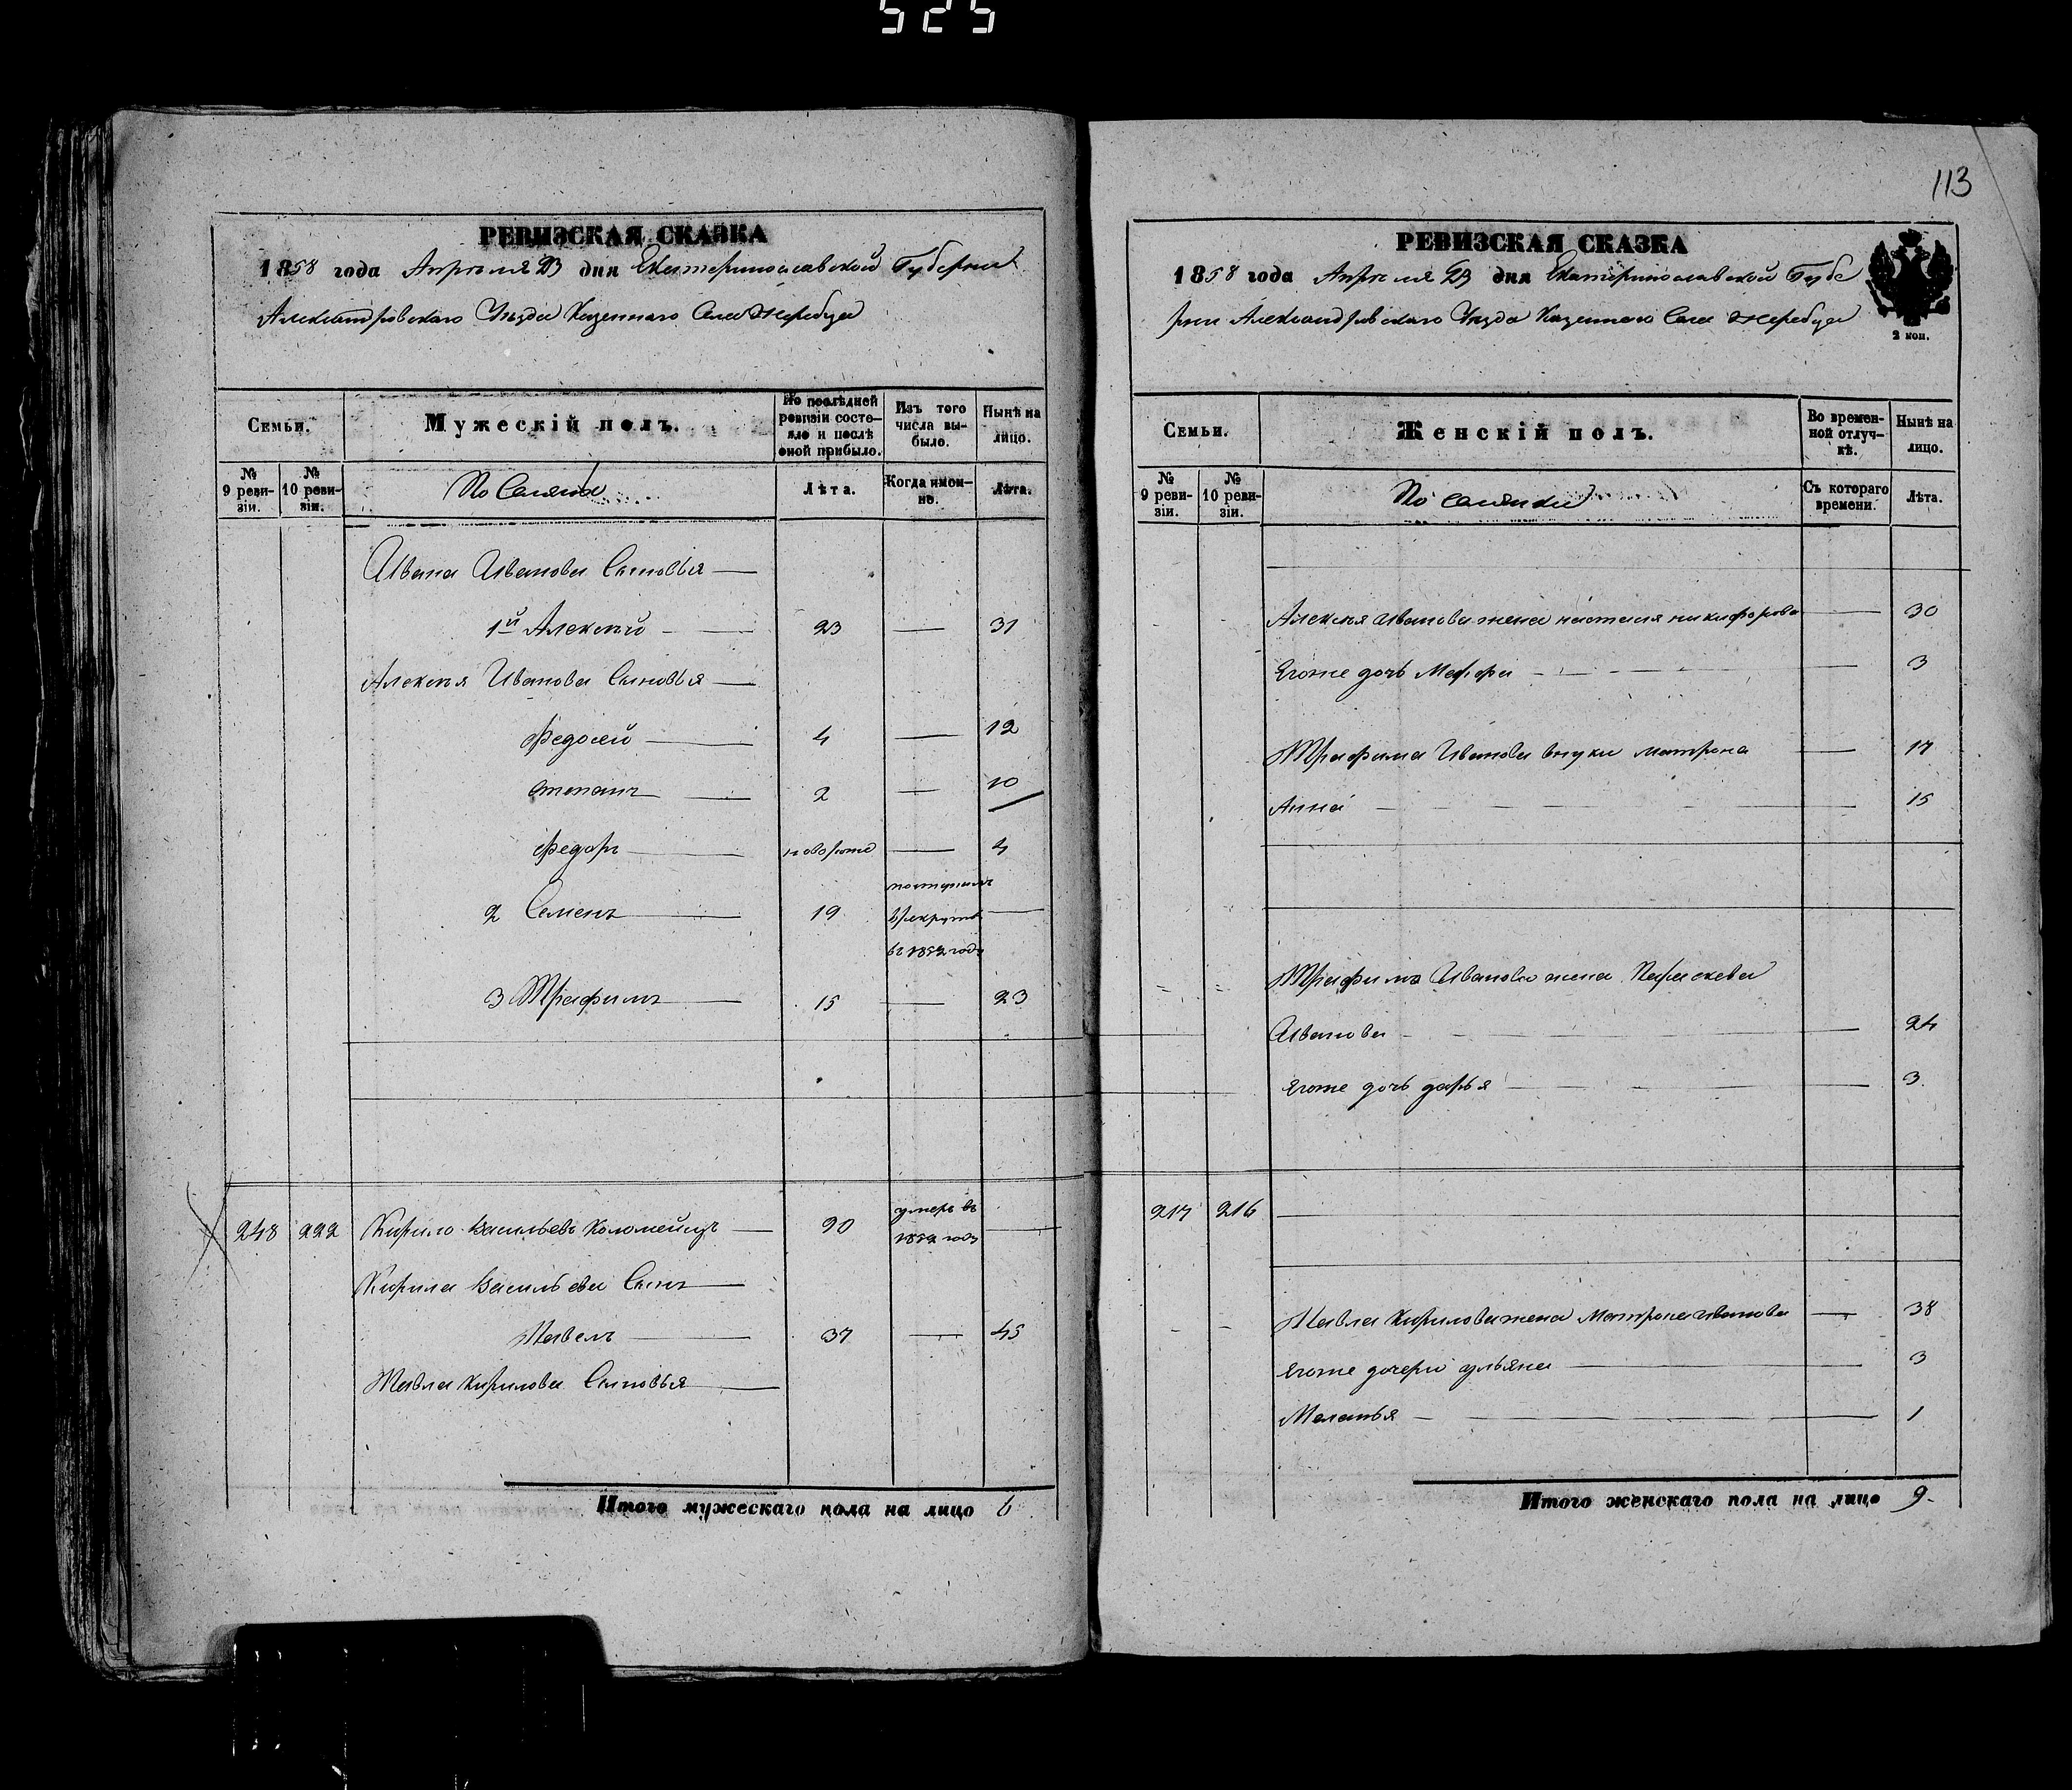 525
РЕВИЗСКАЯ СКАЗКА
1858 года Апреля 23 дня Екатеринославской Губернии
Александровскаго Уезда Казеннаго Села Жеребца
Семьи.
Мужескій полъ.
По послѣдней ревизіи состояло и послѣ оной прибыло.
Изъ того числа выбыло.
Нынѣ на лицо.
№ 9 ревизіи.
№ 10 ревизіи.
Лѣта.
Когда именно.
Лѣта.
Ивана Иванова Сыновья
1й Алексѣй 23 31
Алексѣя Иванова Сыновья
Федосей 4 12
степанъ 2 10
Федоръ новорож 4
2 Семенъ 19 поступилъ
в рекруты
въ годѣ
3 Трафимъ 15 23
248 222 Кирило Васильевъ Коломейцъ 90 умеръ въ
годѣ
Кирила Васильева Сынъ
Павелъ 37 45
Павла Кирилова Сыновья
Итого мужескаго пола на лицо 6
113
РЕВИЗСКАЯ СКАЗКА
1858 года Апреля 23 дня Екатеринославской Губе
рнии Александровскаго Уезда Казеннаго Села Жеребца
2 коп.
Семьи.
Женскій полъ.
Во временной отлучкѣ.
Нынѣ на лицо.
№ 9 ревизіи.
№ 10 ревизіи.
Съ котораго времени.
Лѣта.
Алексѣя Иванова жена настасия никифорова 30
Егоже дочь 3
Трафима Иванова внуки матрона 17
Анна 15
Трафима Иванова жена Параскева
Иванова 24
Егоже дочь дарья 3
217 216
Павла Кирилова жена Матрона иванова 38
Егоже дочери ульяна 3
Меланья 1
Итого женскаго пола на лицо 9.